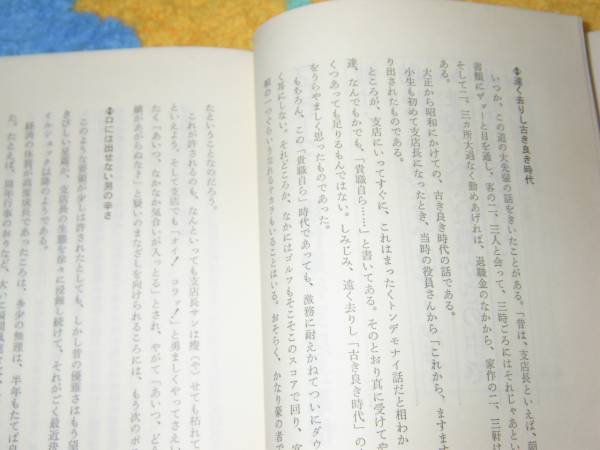 遠く去りし古き良き時代
いつか、この道の大先輩の話をきいたことがある。「昔は、支店長といえば、朝
書類にザァーと目を通し、客の二、三人と会って、三時ごろにはそれじゃあとい
そして二、三カ所大過なく勤めあげれば、退職金のなかから、家作の二、三軒は
ある。
大正から昭和にかけての、古き良き時代の話である。
小生も初めて支店長になったとき、当時の役員さんから「これから、ますます
り出されたものである。
ところが、支店にいってすぐに、これはまったくトンデモナイ話だと相わか
達、なんでもかでも、「貴職自ら……」と書いてある。そのとおり真に受けてや
くつあっても足りるもんではない。しみじみ、遠く去りし「古き良き時代」の
をうらやましく思ったものであった。
もちろん、この「貴職自ら」時代であっても、激務に耐えかねてついにダウ
く耳にしない。それどころか、なかにはゴルフもそこそこのスコアで回り、宴
唄の一つぐらいうなれるサカラもいることはいる。おそらく、かなり豪の者で
たということなのだろう。
これが許されるのも、なんといっても支店長サンは痩（や）せても枯れて
といえよう。そして支店でも「オイ！　コラッ！」と勇ましくやってさえい
たく「あいつ、なかなか気合いが入っとる」とされ、やがて「あいつ、どう
績があがらぬな？」と疑いのまなざしを向けられるころには、もう次のポス
口には出せない男の辛さ
このような蛮勇が少しは許されたとしても、しかし昔の優雅さはもう望
きびしい足音が、支店長の生態を徐々に浸蝕し続けて、それがごく最近決
経済の体質が高度成長であったころは、多少の無理は、半年もたてば自
た。たとえば、周年行事のおりなど、大いに